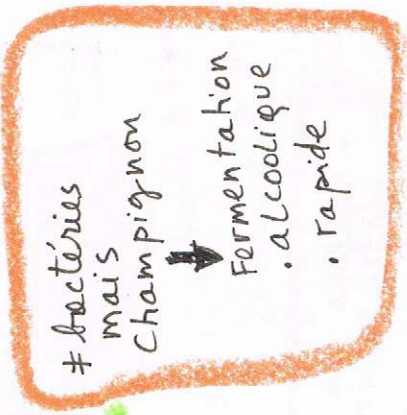 ≠ bactéries
mais
Champignon
Fermentation
• alcoolique
• rapide